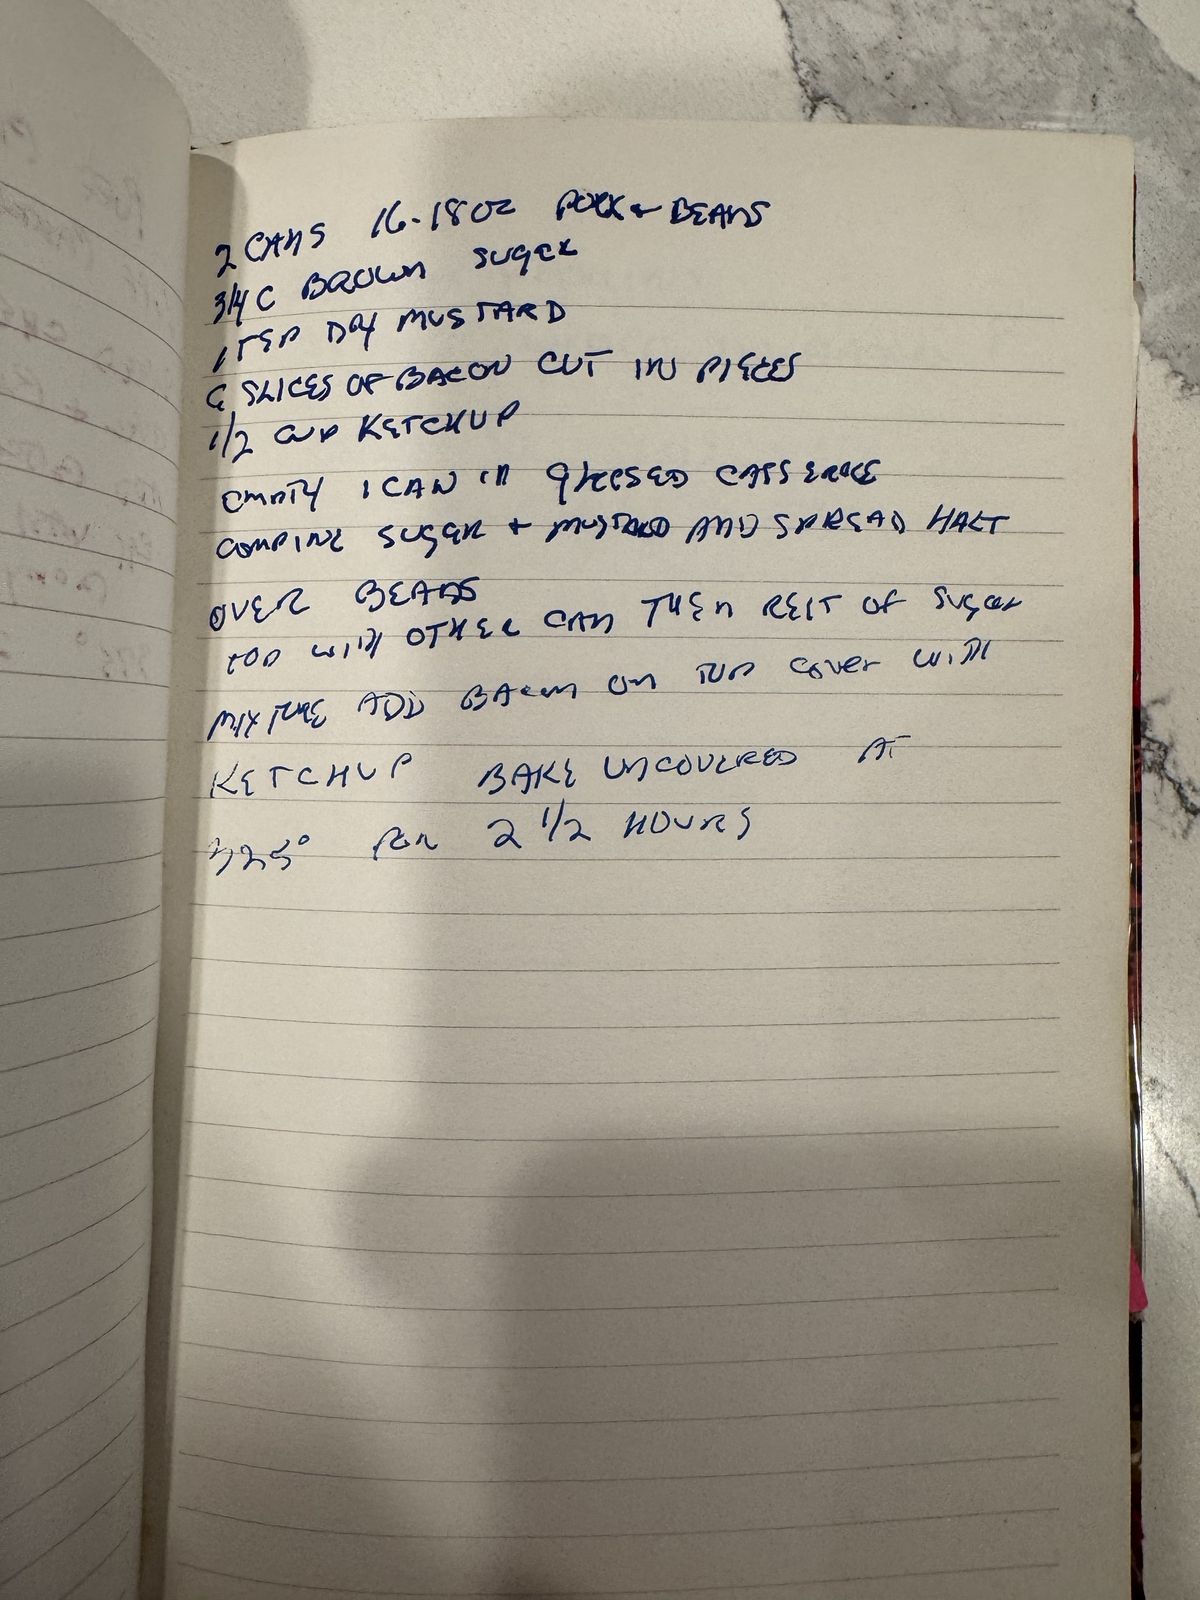 2 CANS 16-18 OZ PORK + BEANS
3/4 C BROWN SUGER
1 TSP DRY MUSTARD
6 SLICES OF BACON CUT IN PIECES
1/2 CUP KETCHUP
EMPTY 1 CAN IN GREESED CASSEROLE
COMBINE SUGER + MUSTARD AND SPREAD HALF
OVER BEANS
TOP WITH OTHER CAN THEN REST OF SUGER
MIXTURE ADD BACON ON TOP COVER WITH
KETCHUP BAKE UNCOVERED AT
325° FOR 2 1/2 HOURS